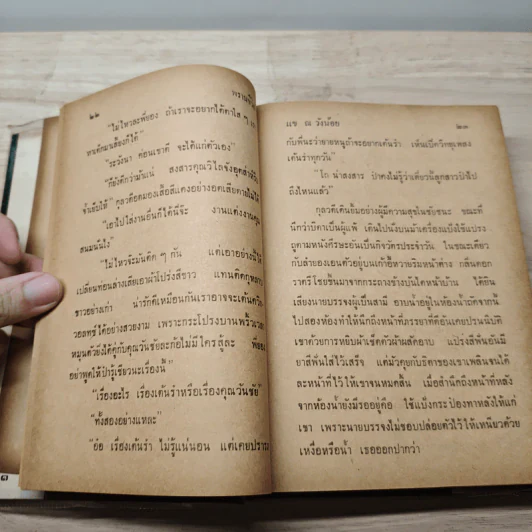 ๒๒
"ไม่ไหวละพี่ยง ถ้าเราจะอยากได้ตาใส ๆ
หาเด็กมาเลี้ยงก็ได้"
"ระวังนา ค่อนเขาดี จะได้แก่ตัวเอง"
"ก็ยังดีกว่าฉันแน่ สงสารคุณวิไลจังอุตส่าห์
จ้ำเข้าให้" กุลวดีคอมองเสื้อสีแดงอย่างอดเสียดายไม่ได้
"เอาไปใส่งานอื่นก็ได้นี่จ๊ะ งานแต่งงาน
สมมนไง"
"ไม่ไหวจ้ะมันดึก ๆ กัน แต่เอาอย่างนี้
เปลี่ยนท่อนล่างเสียเอาผ้าโปร่งสีขาว แทนดีกว่า
ขาวอย่างเก่า น่ารักดีเหมือนกันเราอาจจะเต้น
วอลทซ์ได้อย่างสวยงาม เพราะกระโปรงบานพริ้ว
หมุนด้วยยิ่งได้คู่กับคุณวันชัยละก้อไม่มีใครสู้ละ พี่ยง
อย่าพูดให้ป้ารู้เชียวนะเรื่องนี้"
"เรื่องอะไร เรื่องเต้นรำหรือเรื่องคุณวันชัย"
"ทั้งสองอย่างแหละ"
"อ้อ เรื่องเต้นรำ ไม่รู้แน่นอน แต่เคย
แข ณ วังน้อย
๒๓
กับพี่นะว่ายายหนูถ้าจะอยากเต้นรำ เห็นเปิดวิทยุเพลง
เต้นรำทุกวัน"
"โถ น่าสงสาร ป้าคงไม่รู้ว่าเดี๋ยวนี้ลูกสาวป้าไป
ถึงไหนแล้ว"
กุลวดีเดินยิ้มอย่างผู้มีความสุขในชัยชนะ ขณะที่
นึกว่าบิดาเป็นผู้แพ้ เดินไปนั่งบนม้าเครื่องแป้งใช้แปรง
ถูตามหนังศีรษะอันเป็นกิจวัตรประจำวัน ในขณะเดียว
กับลำยองเอนตัวอยู่บนเก้าอี้หวายริมหน้าต่าง กลิ่นดอก
ราตรีโชยขึ้นมาจากกระถางข้างบันไดหน้าบ้าน ได้ยิน
เสียงนายบรรจงผู้เป็นสามี อาบน้ำอยู่ในห้องน้ำถัดจากนี้
ไปสองห้องทำให้นึกถึงหน้าที่ภรรยาที่ดีอันเคยปรนนิบัติ
เขาด้วยการหยิบผ้าเช็ดตัวผ้าผลัดอาบ แปรงสีฟันอันมี
ยาสีฟันใส่ไว้เสร็จ แต่มัวคุยกับธิดาของเขาเพลินจนได้
ละหน้าที่ไว้ให้เขาจนหมดสิ้น เมื่อสำนึกถึงหน้าที่หลัง
จากห้องน้ำยังมีรออยู่คือ ใช้แป้งกระป๋องทาหลังให้แก่
เขา เพราะนายบรรจงไม่ชอบปล่อยตัวไว้ให้เหนียวด้วย
เหงื่อหรือน้ำ เธอออกปากว่า